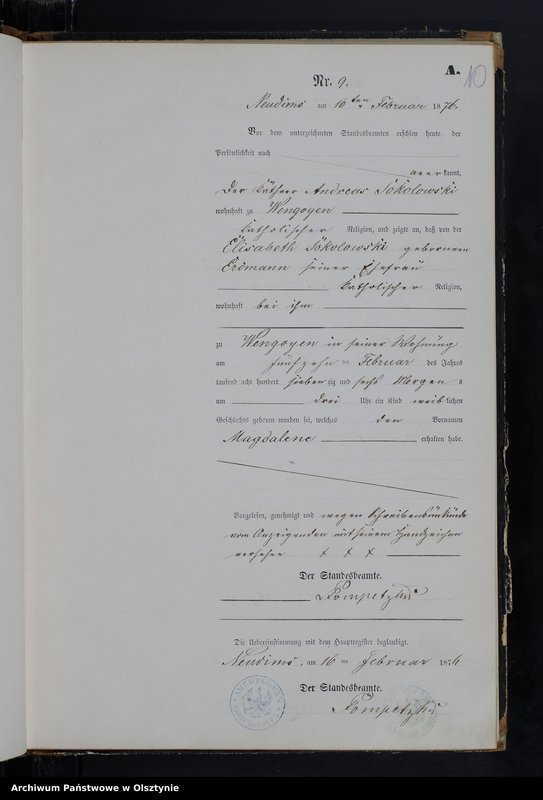 A.
10
Nr. 9.
Neudims am 16ten Februar 1876.
Vor dem unterzeichneten Standesbeamten erschien heute, der
Persönlichkeit nach
kannt,
der Käthner Andreas Sokolowski
wohnhaft zu Wengoyen
katholischer Religion, und zeigte an, daß von der
Elisabeth Sokolowski geborenen
Erdmann seiner Ehefrau
katholischer Religion,
wohnhaft bei ihm
zu Wengoyen in seiner Wohnung
am fünfzehn ten Februar des Jahres
tausend acht hundert siebenzig und sechs Morgens
um drei Uhr ein Kind weiblichen
Geschlechts geboren worden sei, welches den Vornamen
Magdalene erhalten habe.
Vorgelesen, genehmigt und wegen Schreibensunkunde
vom Anzeigenden mit seinem Handzeichen
versehen + + +
Der Standesbeamte.
Die Uebereinstimmung mit dem Hauptregister beglaubigt.
Neudims, am 16 ten Februar 1876
Der Standesbeamte.
Archiwum Państwowe w Olsztynie